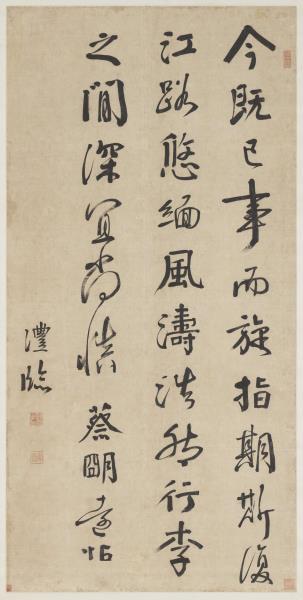 今既已事而旋指期斯復
江路悠緬風濤浩然行李
之間深宜尚慎 蔡明遠帖
澧臨